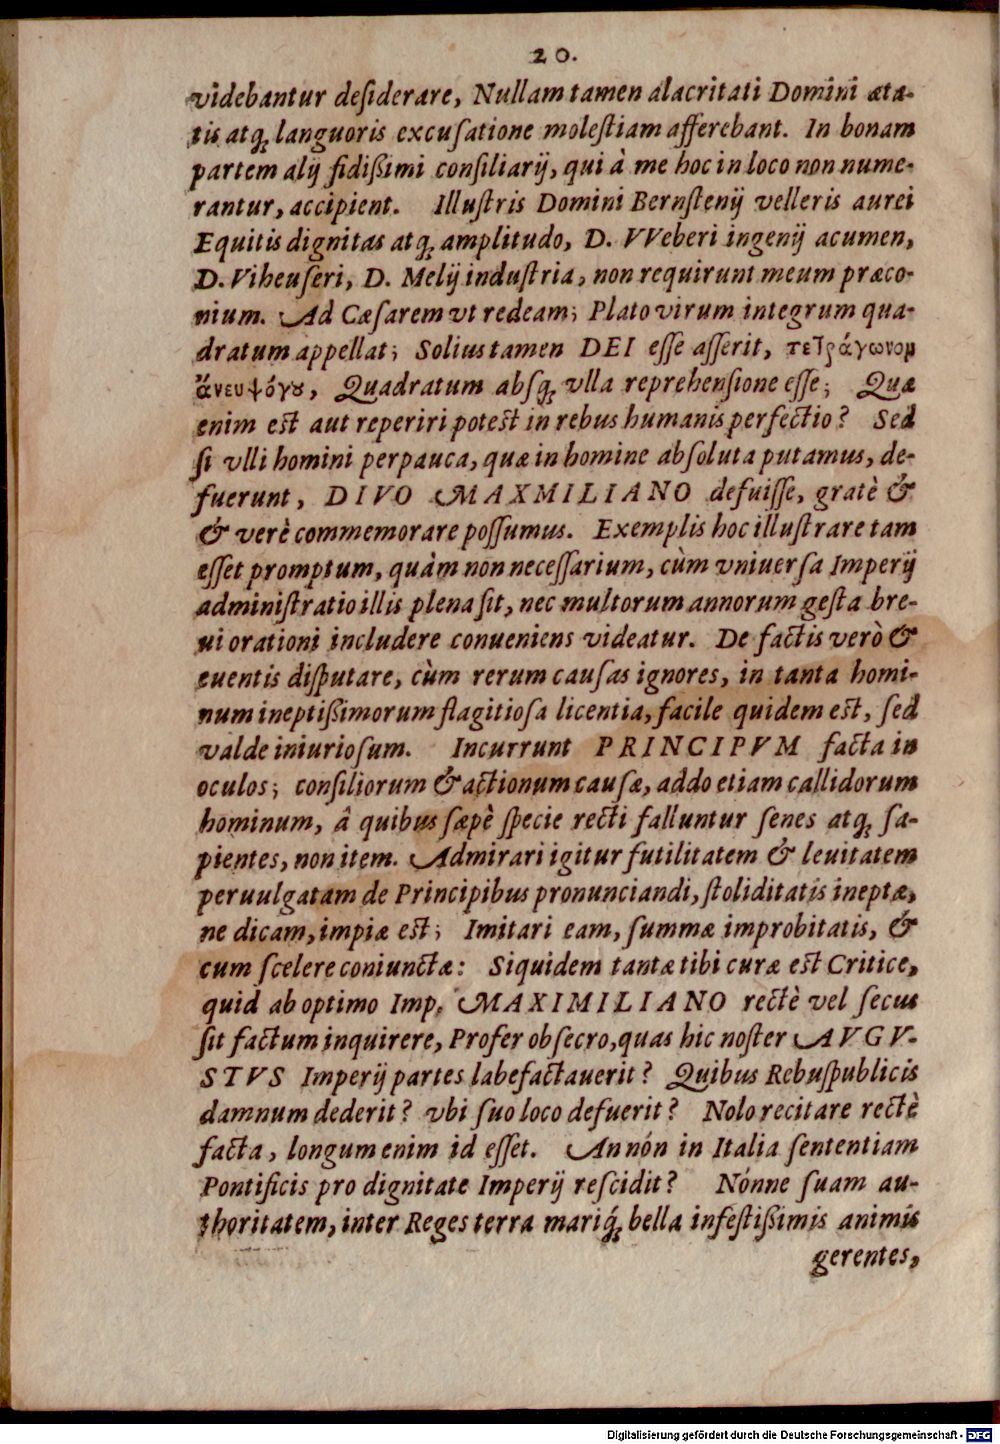 20.
videbantur deſiderare, Nullam tamen alacritati Domini æta-
tis atq; languoris excuſatione moleſtiam afferebant. In bonam
partem alij fidißimi conſiliarij, qui à me hoc in loco non nume-
rantur, accipient. Illuſtris Domini Bernſtenij velleris aurei
Equitis dignitas atq; amplitudo, D. VVeberi ingenij acumen,
D. Viheuſeri, D. Melij induſtria, non requirunt meum præco-
nium. Ad Cæſarem vt redeam; Plato virum integrum qua-
dratum appellat; Solius tamen DEI eſſe aſſerit, τετράγωνομ
ἄνευ ψόγȣ, Quadratum abſq; vlla reprehenſione eſſe; Quæ
enim eſt aut reperiri poteſt in rebus humanis perfectio? Sed
ſi vlli homini perpauca, quæ in homine abſoluta putamus, de-
fuerunt, DIVO MAXMILIANO defuiſſe, gratè &
& verè commemorare poſſumus. Exemplis hoc illuſtrare tam
eſſet promptum, quàm non neceſſarium, cùm vniuerſa Imperij
adminiſtratio illis plena ſit, nec multorum annorum geſta bre-
ui orationi includere conueniens videatur. De factis verò &
euentis diſputare, cùm rerum cauſas ignores, in tanta homi-
num ineptißimorum flagitioſa licentia, facile quidem eſt, ſed
valde iniurioſum. Incurrunt PRINCIPVM facta in
oculos; conſiliorum & actionum cauſæ, addo etiam callidorum
hominum, â quibus ſæpè ſpecie recti falluntur ſenes atq; ſa-
pientes, non item. Admirari igitur futilitatem & leuitatem
peruulgatam de Principibus pronunciandi, ſtoliditatis ineptæ,
ne dicam, impiæ eſt; Imitari eam, ſummæ improbitatis, &
cum ſcelere coniunctæ: Siquidem tantæ tibi curæ eſt Critice,
quid ab optimo Imp. MAXIMILIANO rectè vel ſecus
ſit factum inquirere, Profer obſecro, quas hic noſter AVGV-
STVS Imperij partes labefactauerit? Quibus Rebuſpublicis
damnum dederit? vbi ſuo loco defuerit? Nolo recitare rectè
facta, longum enim id eſſet. An nón in Italia ſententiam
Pontificis pro dignitate Imperij reſcidit? Nónne ſuam au-
thoritatem, inter Reges terra mariq́; bella infeſtißimis animis
gerentes,
Digitalisierung gefördert durch die Deutsche Forschungsgemeinschaft - DFG